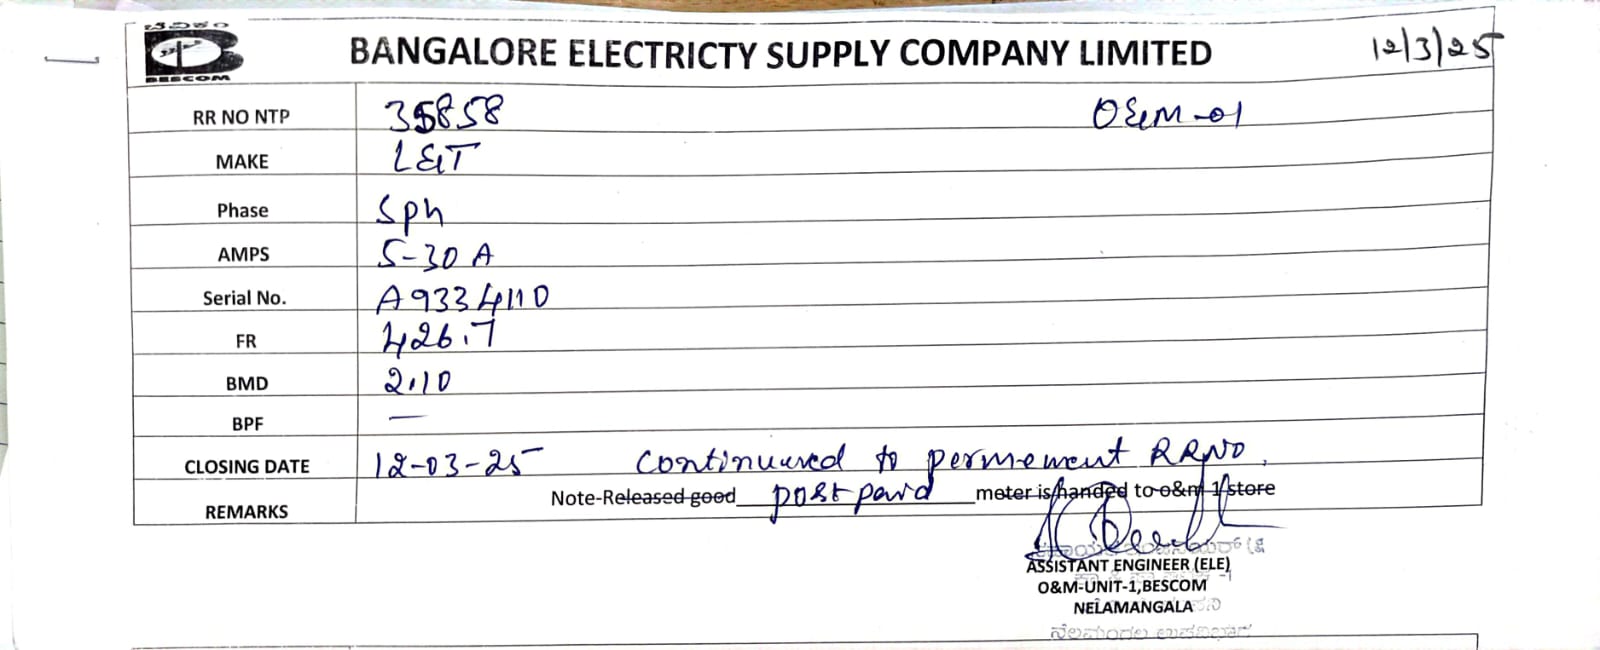 ಬೆವಿಕಂ
BESCOM
BANGALORE ELECTRICTY SUPPLY COMPANY LIMITED 12/3/25
RR NO NTP 35858 O&M-01
MAKE L&T
Phase Sph
AMPS 5-30 A
Serial No. A9334110
FR 426.7
BMD 2.10
BPF —
CLOSING DATE 12-03-25 continuured to permement RRNO.
REMARKS Note-Released good postpaid meter is handed to o&m 1 store
ASSISTANT ENGINEER (ELE)
O&M-UNIT-1,BESCOM
NELAMANGALA
ನೆಲಮಂಗಲ ಉಪವಿಭಾಗ